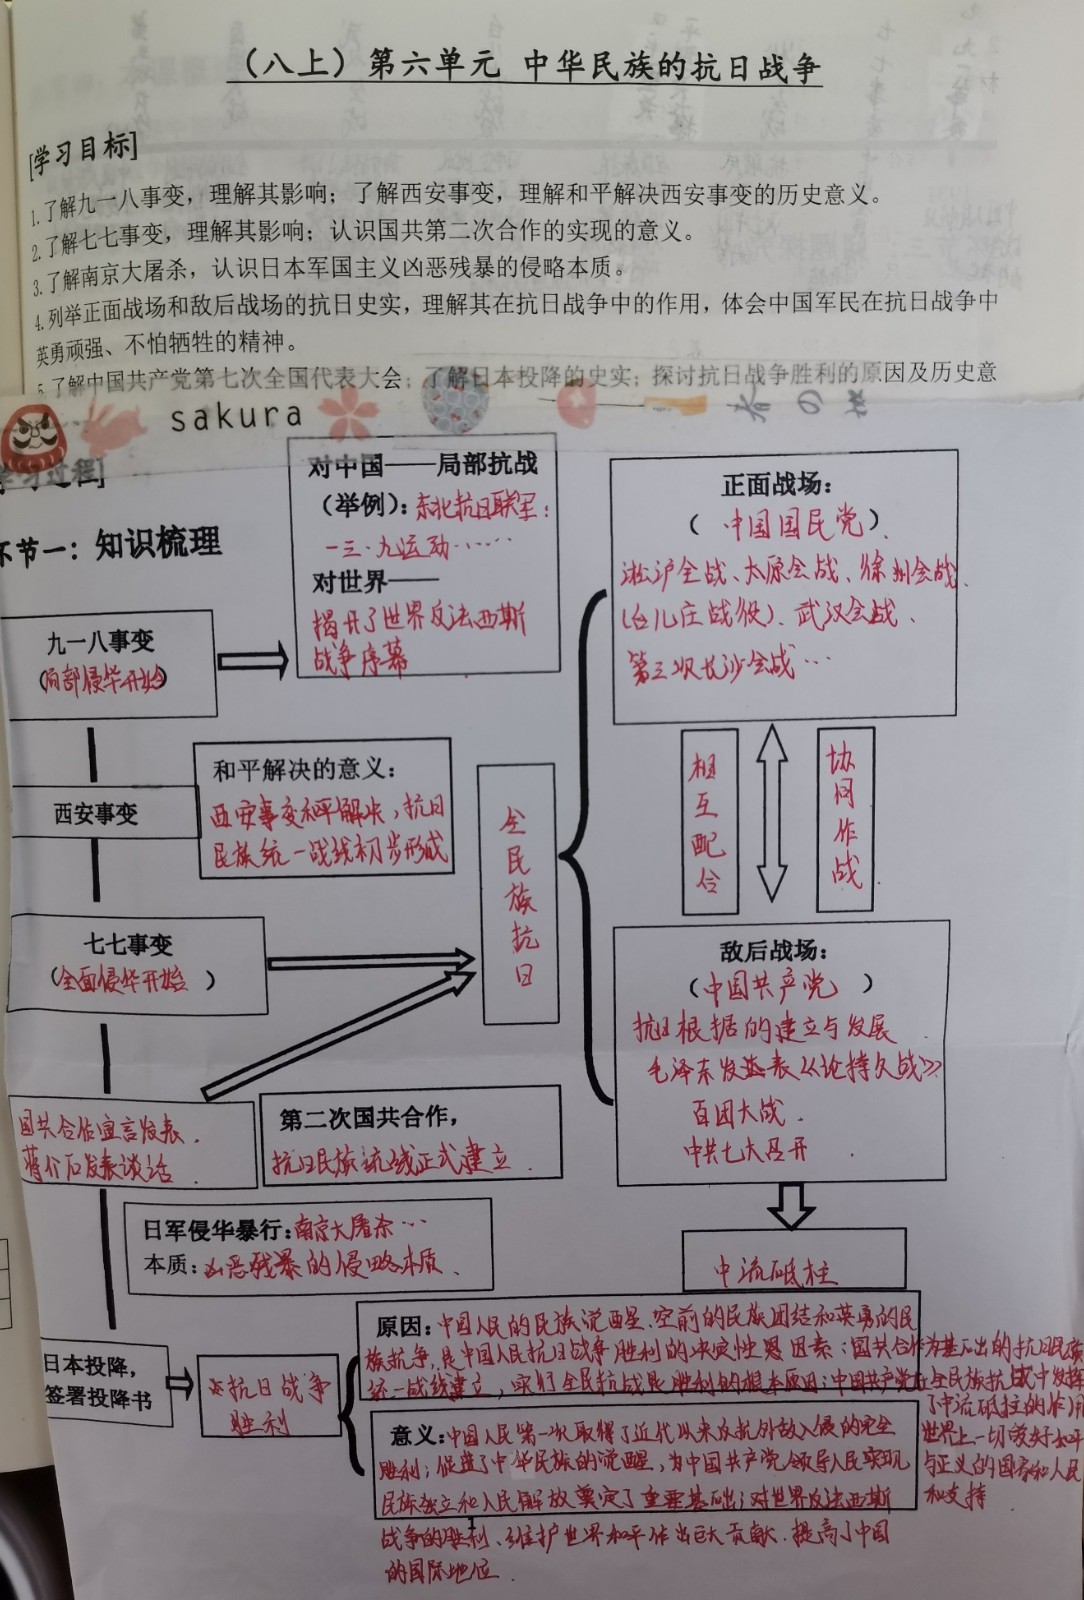 （八上）第六单元 中华民族的抗日战争
[学习目标]
1.了解九一八事变，理解其影响；了解西安事变，理解和平解决西安事变的历史意义。
2.了解七七事变，理解其影响；认识国共第二次合作的实现的意义。
3.了解南京大屠杀，认识日本军国主义凶恶残暴的侵略本质。
4.列举正面战场和敌后战场的抗日史实，理解其在抗日战争中的作用，体会中国军民在抗日战争中
英勇顽强、不怕牺牲的精神。
5.了解中国共产党第七次全国代表大会；了解日本投降的史实；探讨抗日战争胜利的原因及历史意
sakura
学习过程]
环节一：知识梳理
对中国——局部抗战
（举例）：东北抗日联军：
一二·九运动……
对世界——
揭开了世界反法西斯
战争序幕
九一八事变
（局部侵华开始）
西安事变
和平解决的意义：
西安事变和平解决，抗日
民族统一战线初步形成
七七事变
（全面侵华开始）
全民族抗日
正面战场：
（中国国民党）
淞沪会战、太原会战、徐州会战
（台儿庄战役）、武汉会战、
第三次长沙会战…
相互配合
协同作战
敌后战场：
（中国共产党）
抗日根据的建立与发展
毛泽东发表《论持久战》
百团大战
中共七大召开
中流砥柱
国共合作宣言发表，
蒋介石发表谈话
第二次国共合作，
抗日民族统战线正式建立
日军侵华暴行：南京大屠杀…
本质：凶恶残暴的侵略本质、
日本投降，
签署投降书
抗日战争
胜利
原因：中国人民的民族觉醒、空前的民族团结和英勇的民
族抗争，是中国人民抗日战争胜利的决定性因素；国共合作为基础的抗日民族
统一战线建立，实行全民抗战是胜利的根本原因；中国共产党在全民族抗战中发挥
了中流砥柱的作用
世界上一切爱好和平
与正义的国家和人民
和支持
意义：中国人民第一次取得了近代以来反抗外敌入侵的完全
胜利；促进了中华民族的觉醒，为中国共产党领导人民实现
民族独立和人民解放奠定了重要基础；对世界反法西斯
战争的胜利、维护世界和平作出巨大贡献、提高了中国
的国际地位
1